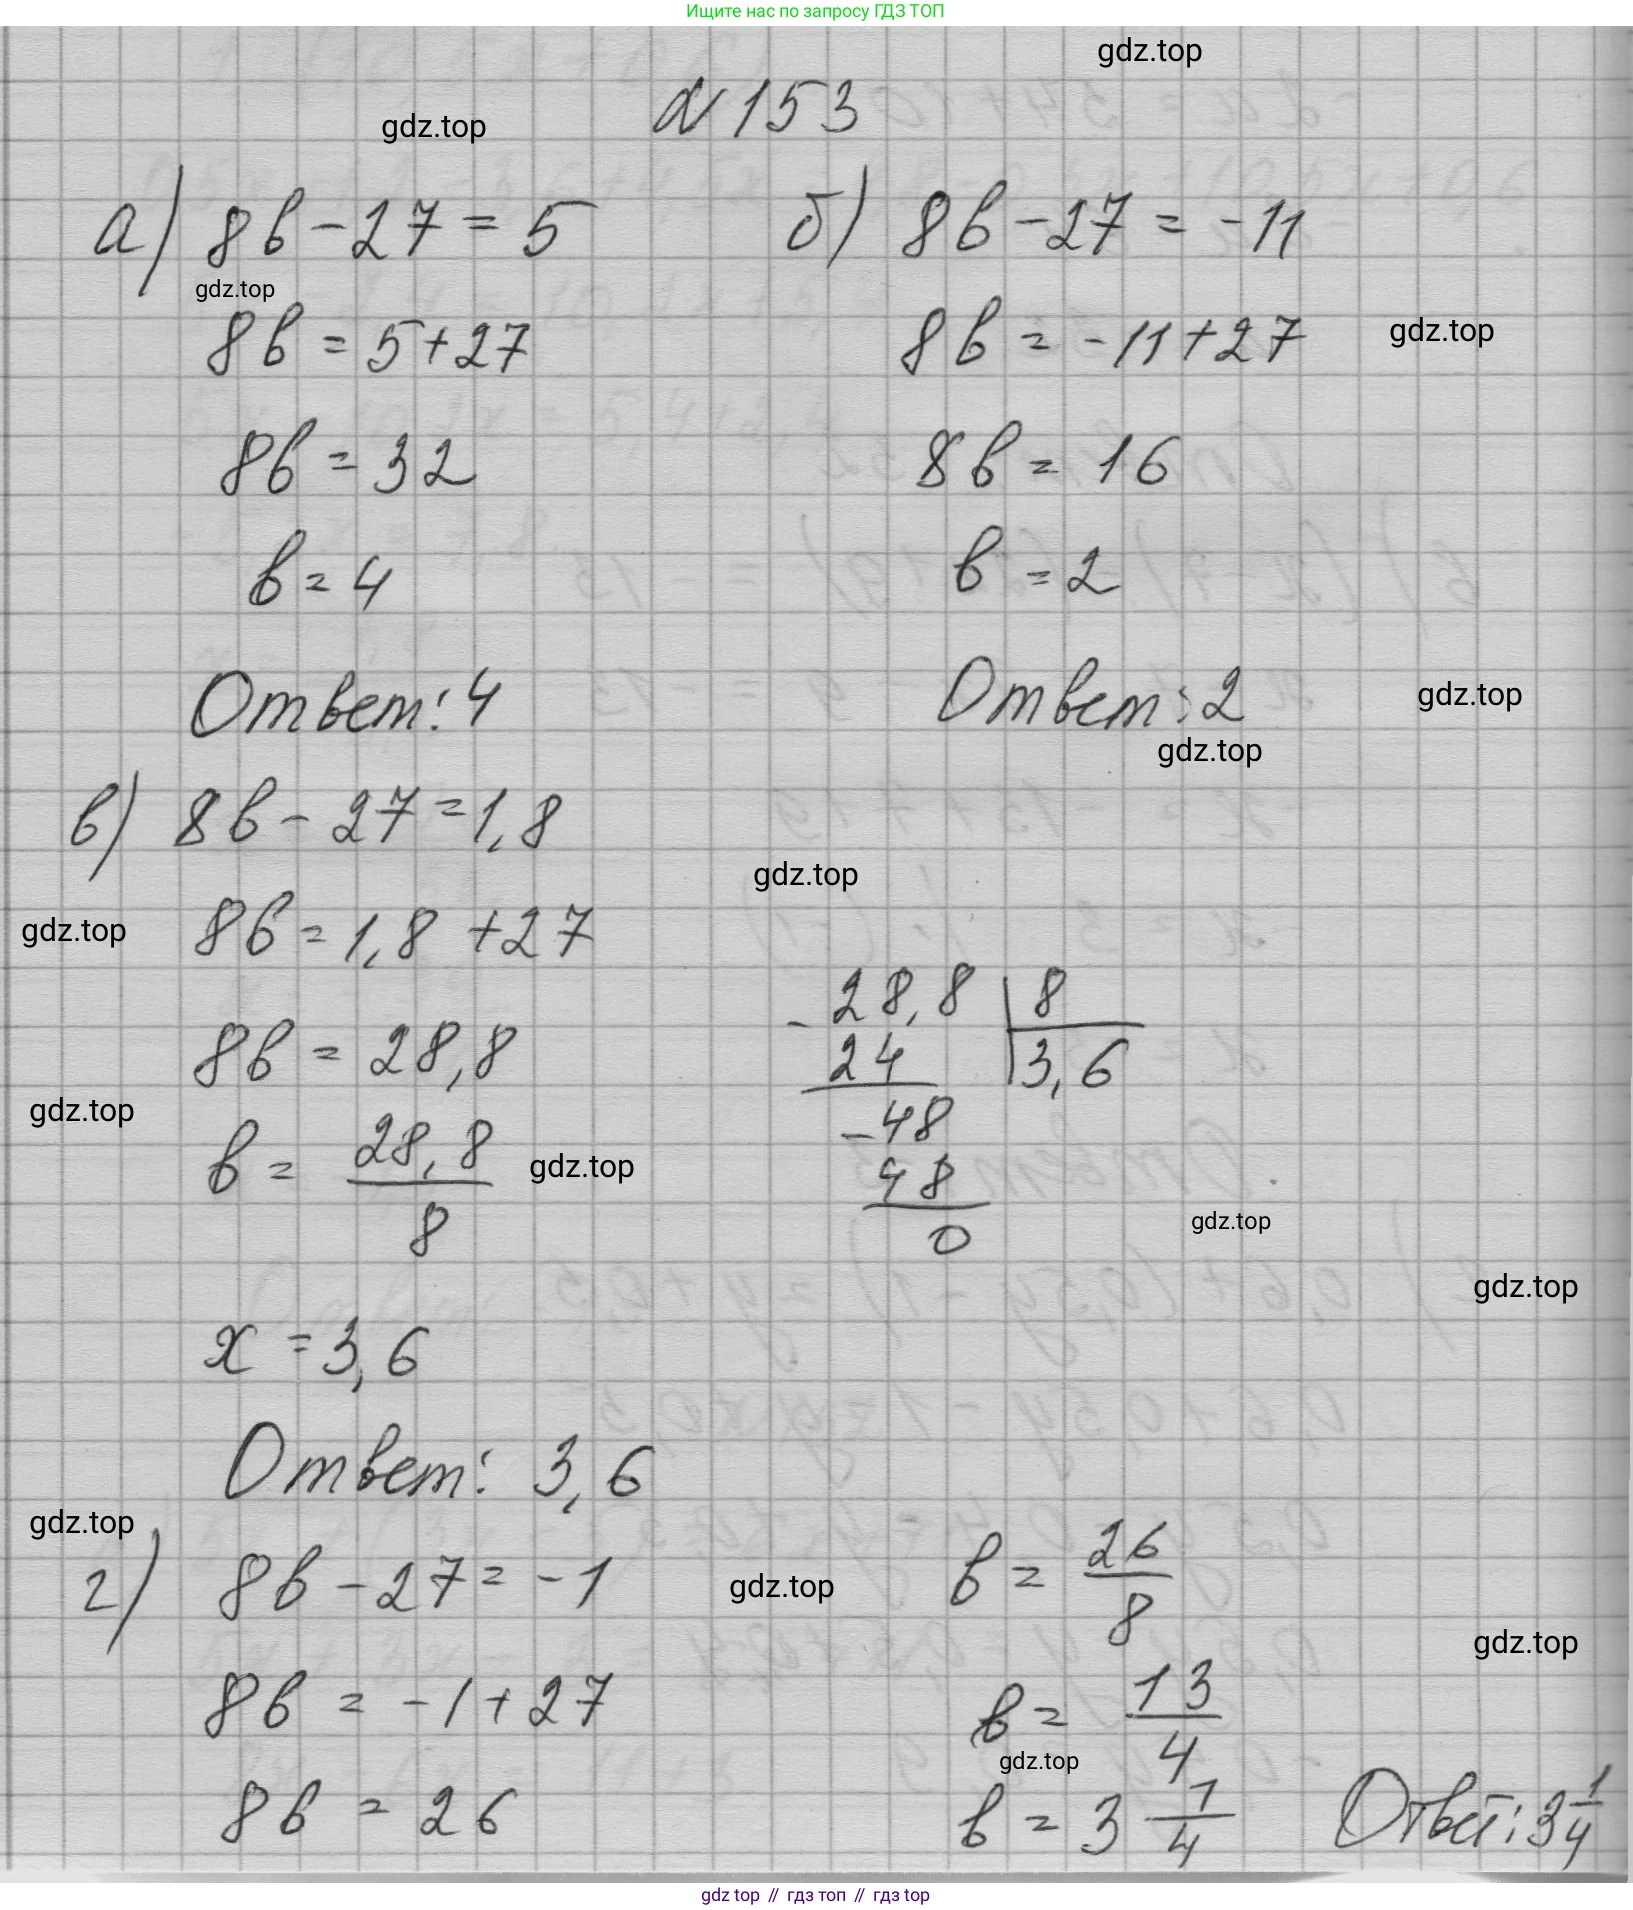 Ищите нас по запросу ГДЗ ТОП
gdz.top
№153
gdz.top
а) 8b-27=5
gdz.top
8b=5+27
8b=32
b=4
Ответ: 4
б) 8b-27=-11
8b=-11+27
gdz.top
8b=16
b=2
Ответ: 2
gdz.top
gdz.top
в) 8b-27=1,8
gdz.top
8b=1,8+27
gdz.top
8b=28,8
gdz.top
b=28,8/8
gdz.top
-28,8|8
24 |3,6
-48
48
0
gdz.top
gdz.top
x=3,6
Ответ: 3,6
gdz.top
г) 8b-27=-1
8b=-1+27
8b=26
gdz.top
b=26/8
gdz.top
b=13/4
gdz.top
b=3 1/4
Ответ: 3 1/4
gdz.top // гдз топ // гдз top